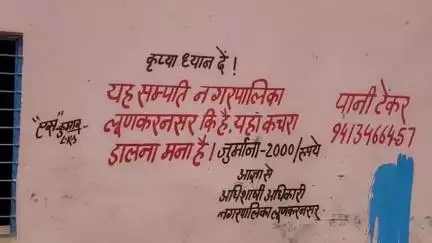 कृप्या ध्यान दें !
यह सम्पति नगरपालिका
लूणकरनसर कि है, यहां कचरा
डालना मना है। जुर्माना-2000/रूपये
आज्ञा से
अधिशाषी अधिकारी
नगरपालिका लूणकरनसर
पानी टेंकर
9413466457
कुमार